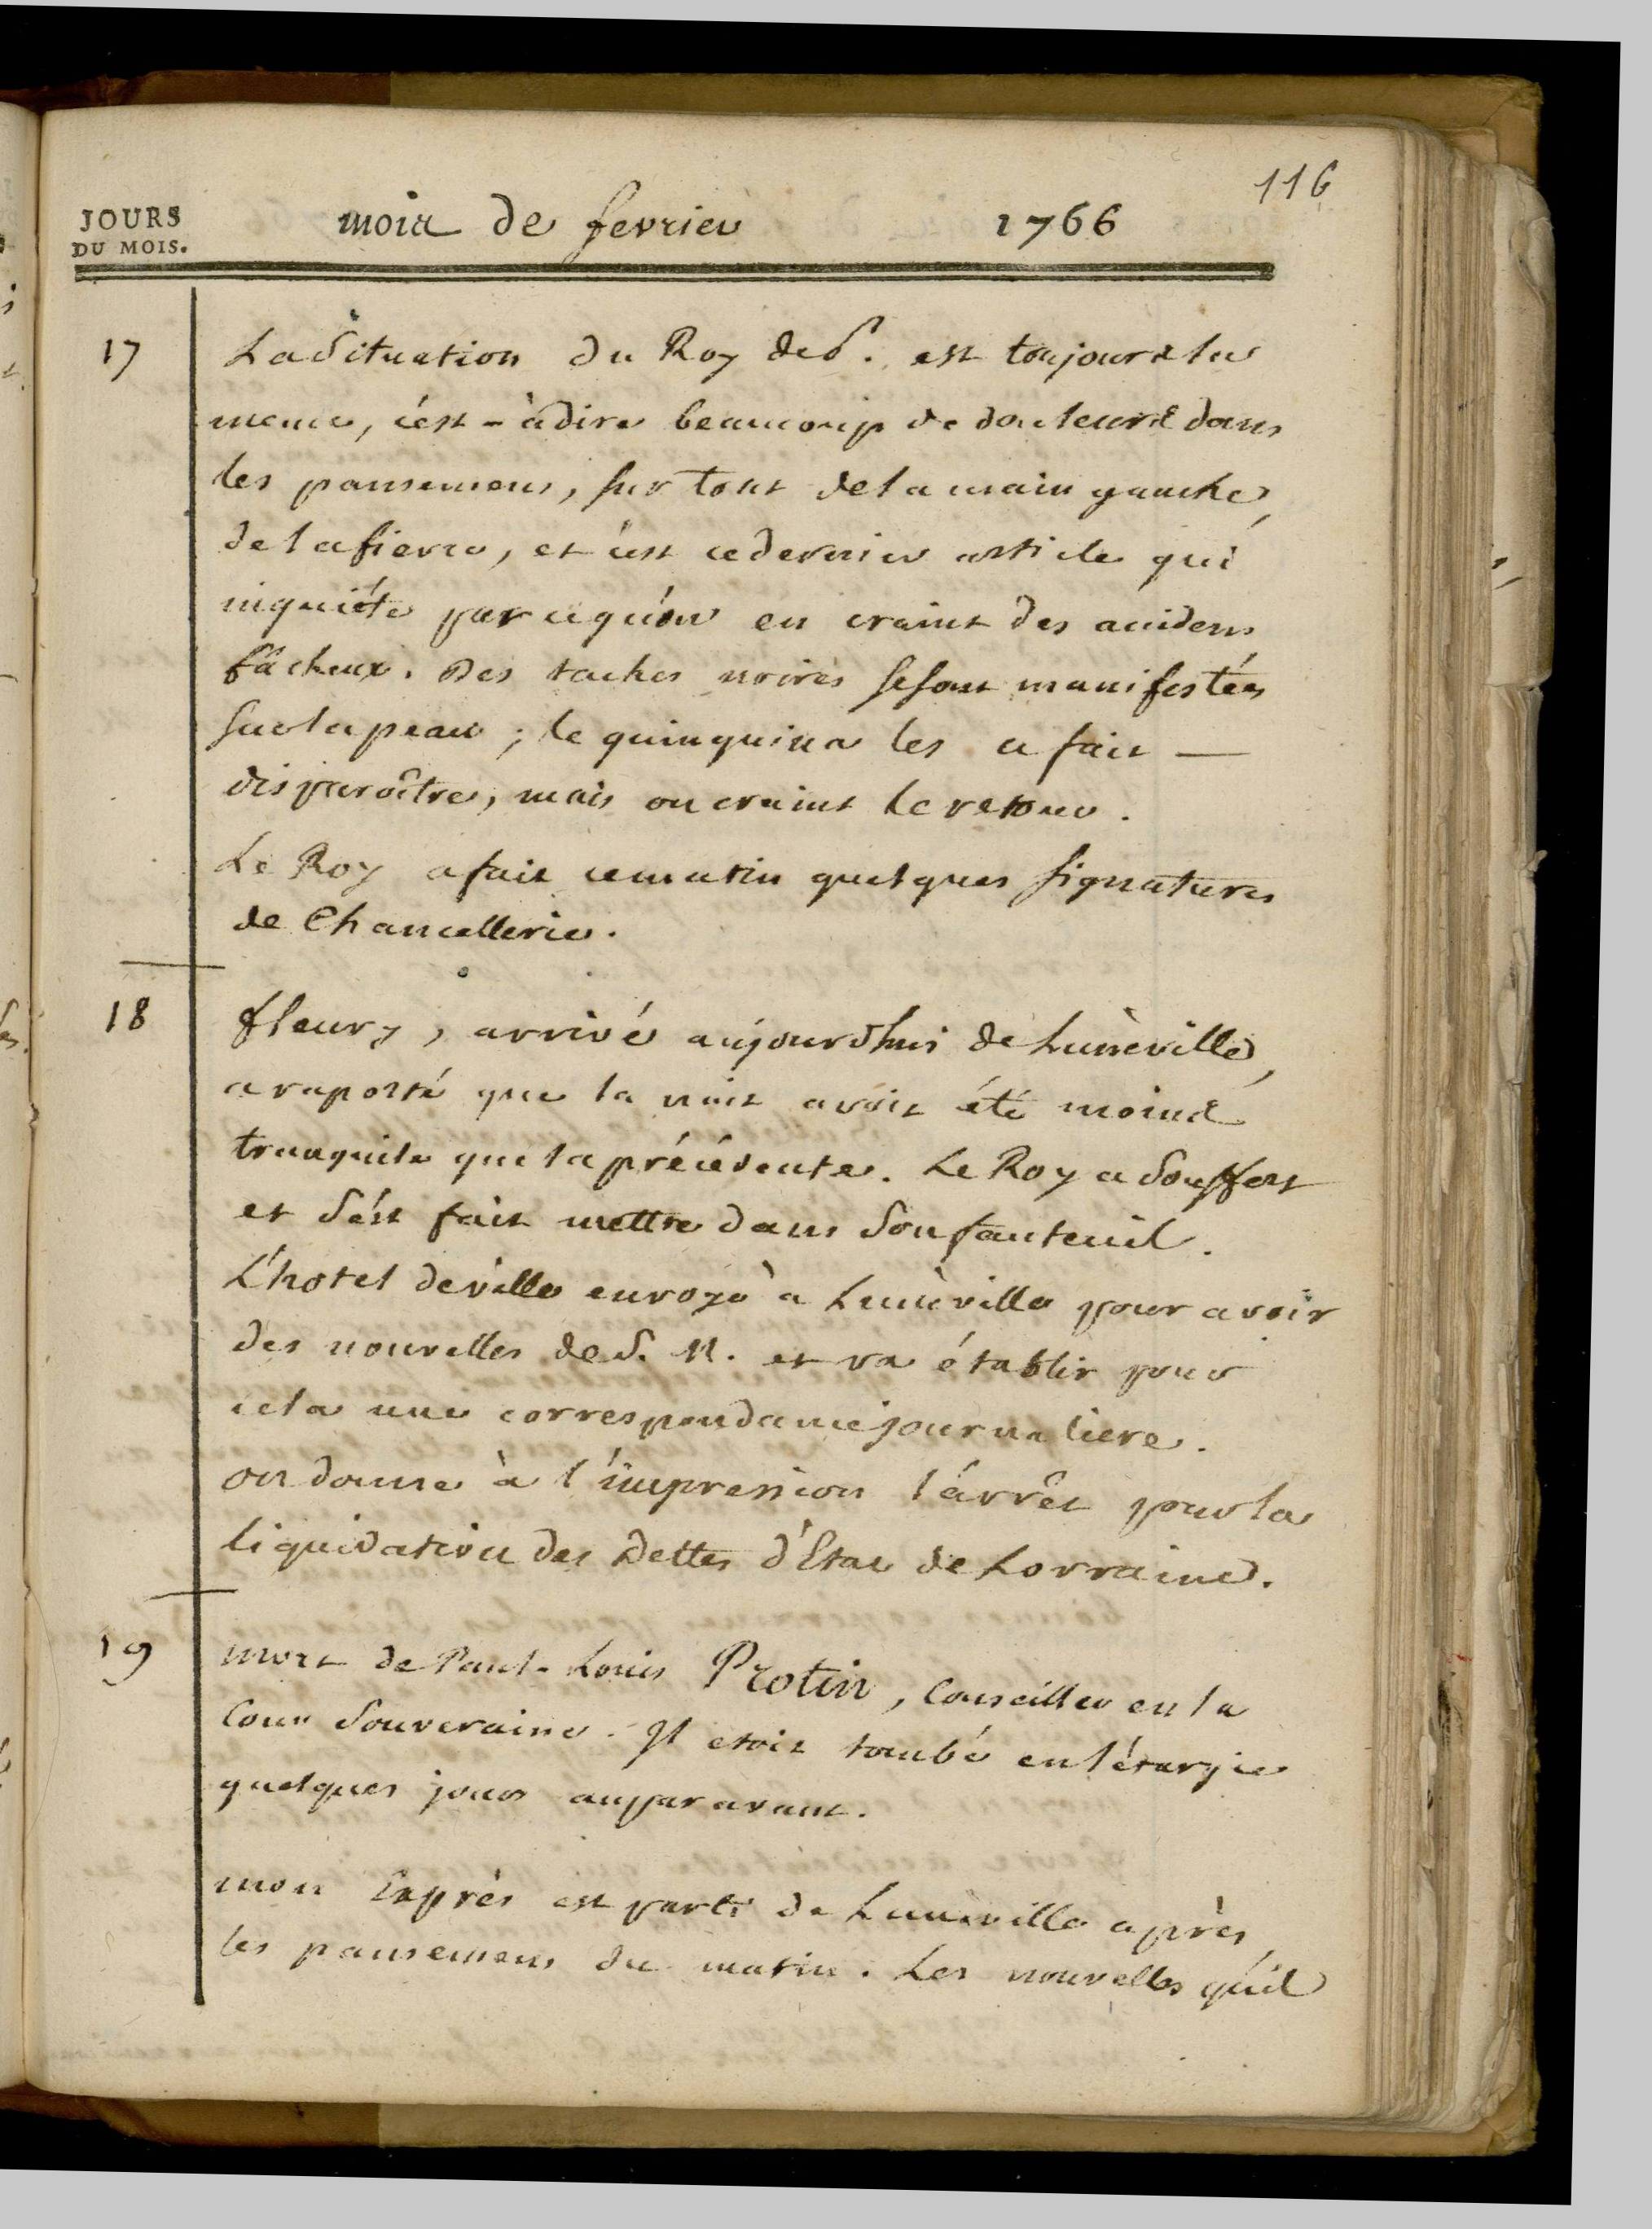 116
JOURS
DU MOIS.
mois de fevrier 1766
17
La Situation du Roy de P. est toujours la
meme, c'est-à dire beaucoup de douleurs dans
les pansemens, sur tout de la main gauche,
de la fievre, et c'est ce dernier article qui
inquiéte par ce qu'on en craint des accidens
fâcheux. Des taches noires se sont manifestées
sur la peau ; le quinquina les a fait —
disparoître, mais on craint le retour.
Le Roy a fait ce matin quelques signatures
de Chancellerie.
18
fleury, arrivé aujourdhui de Lunéville,
a raporté que la nuit avoit été moins
tranquile que la précédente. Le Roy a souffert
et s'est fait mettre dans son fauteuil.
L'hotel de ville envoye à Lunéville pour avoir
des nouvelles de S. M. et va établir pour
cela une correspondance journaliere.
on donne à l'impression l'arrêt pour la
liquidation des Dettes d'Etat de Lorraine.
19
mort de Paul-Louis Protin, Conseiller en la
Cour Souveraine. Il etoit tombé en létargie
quelques jours auparavant.
mon Exprès est parti de Lunéville après
les pansemens du matin. Les nouvelles qu'il